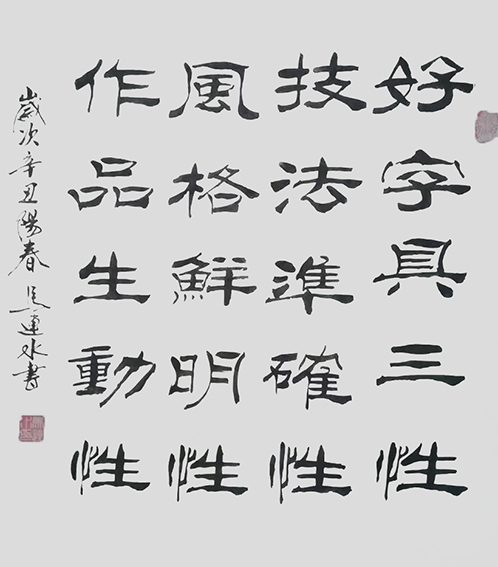 好字具三性
技法準確性
風格鮮明性
作品生動性
歲次辛丑陽春吳運水書